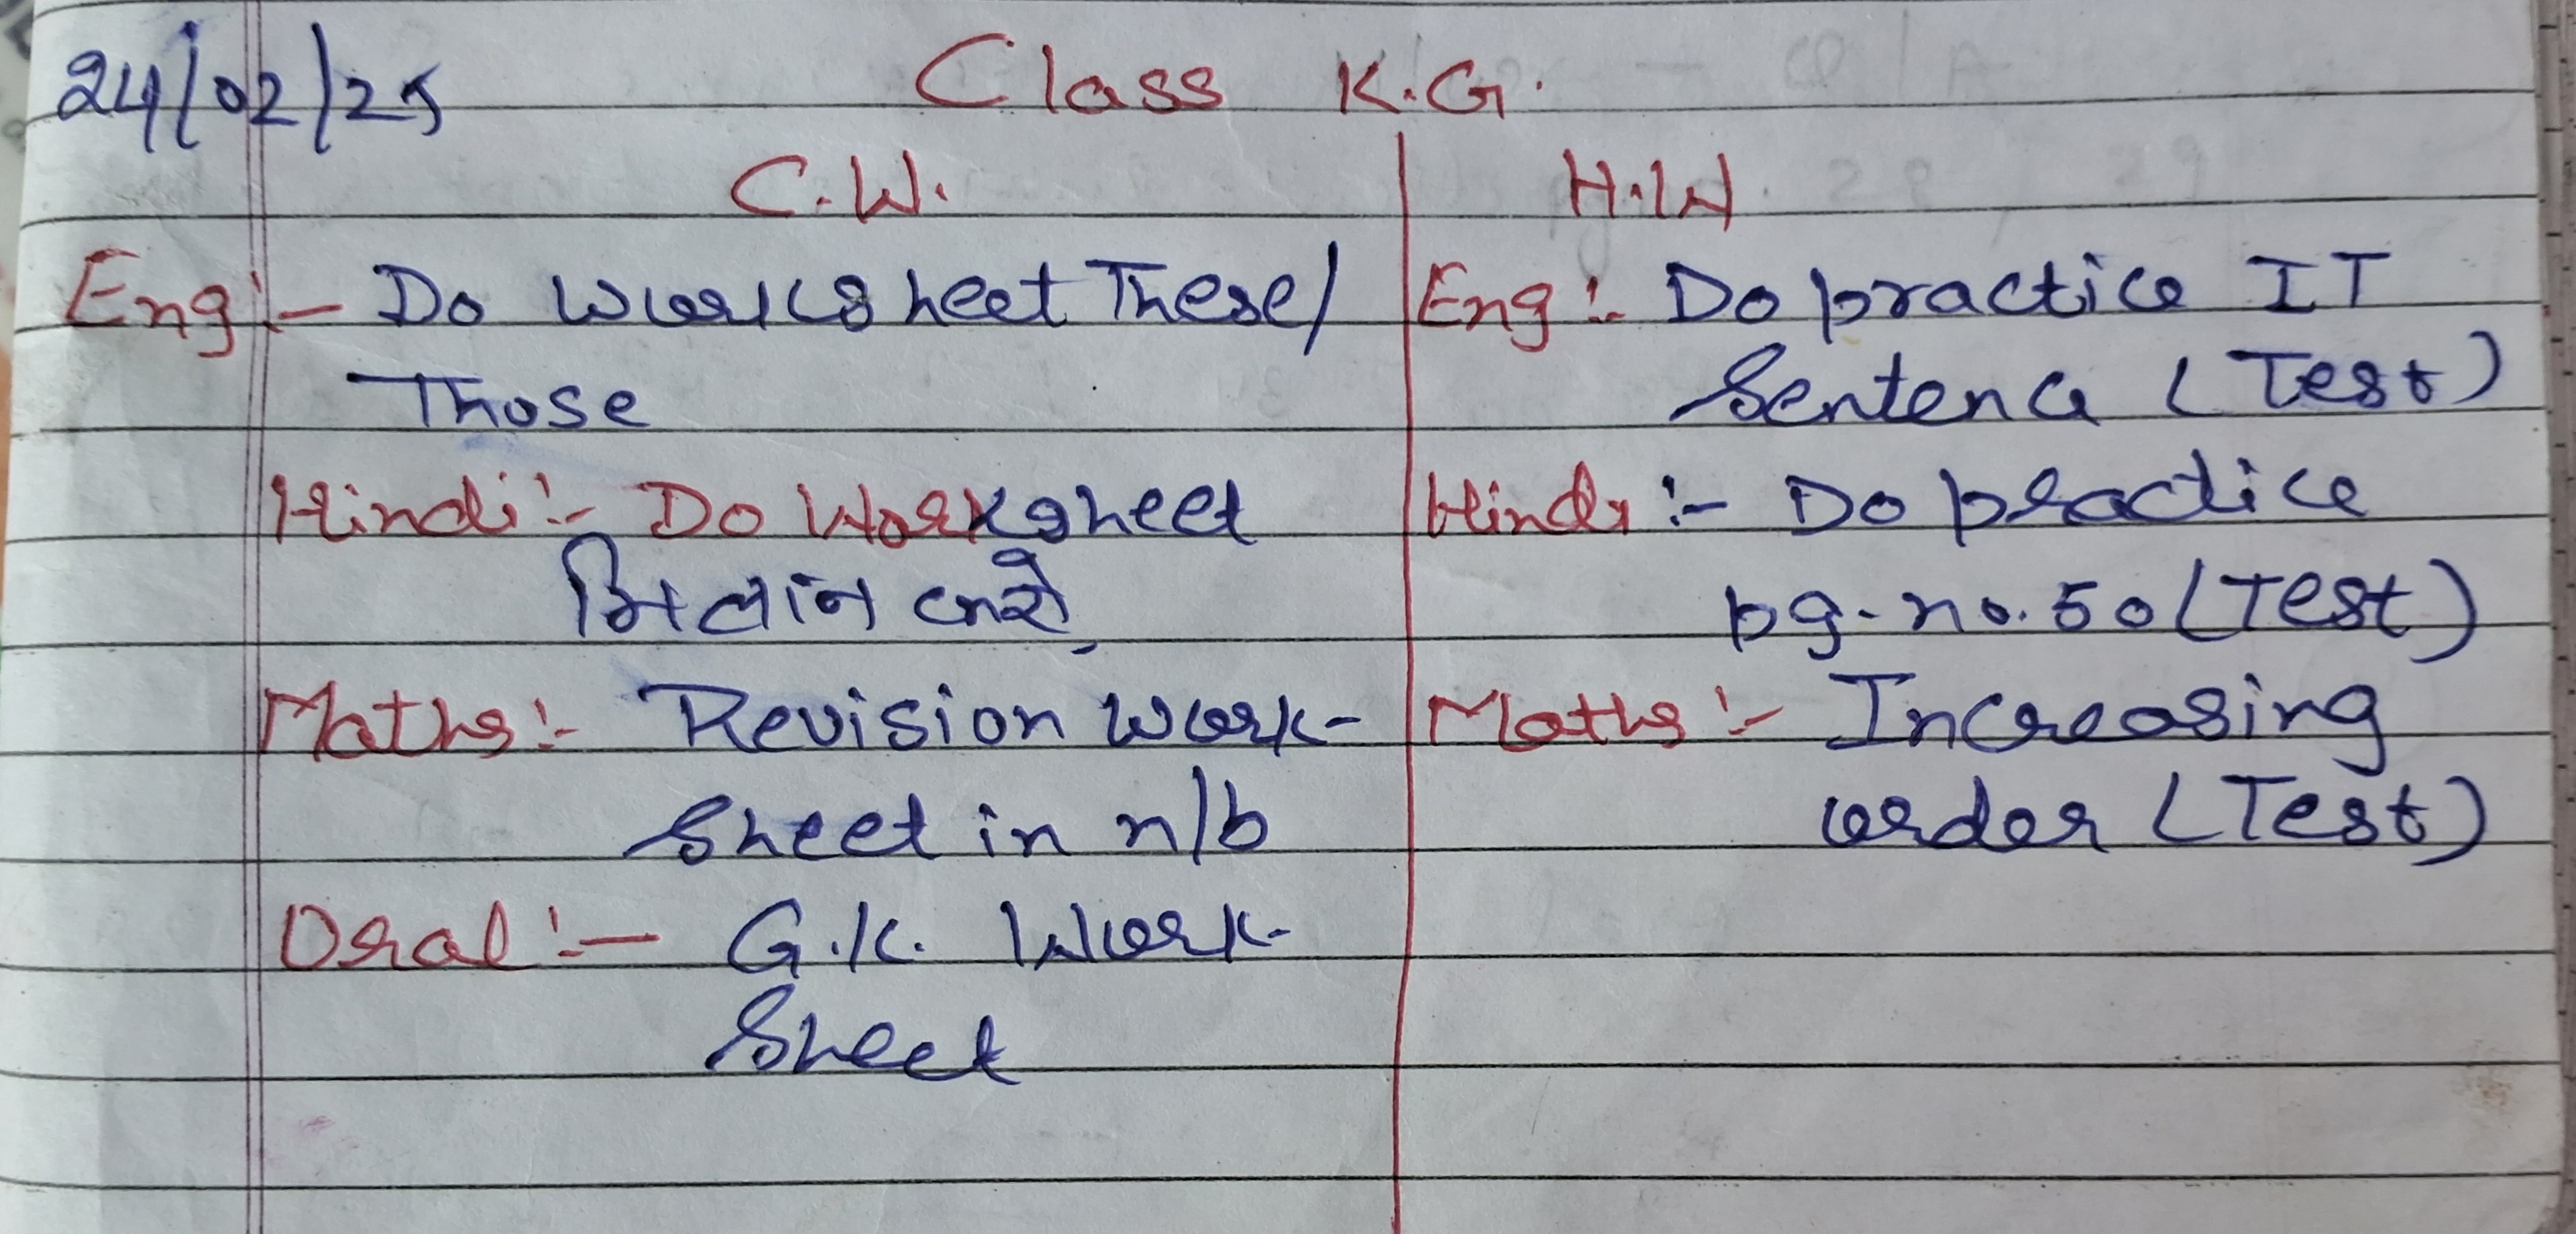 24/02/25 Class K.G.
C.W.
Eng:- Do Worksheet These/
Those
Hindi:- Do Worksheet
मिलान करो
Maths:- Revision Work-
Sheet in n/b
Oral:- G.K. Work-
Sheet
H.W.
Eng:- Do practice IT
Sentence (Test)
Hindi:- Do practice
pg. no. 50 (Test)
Maths:- Increasing
order (Test)